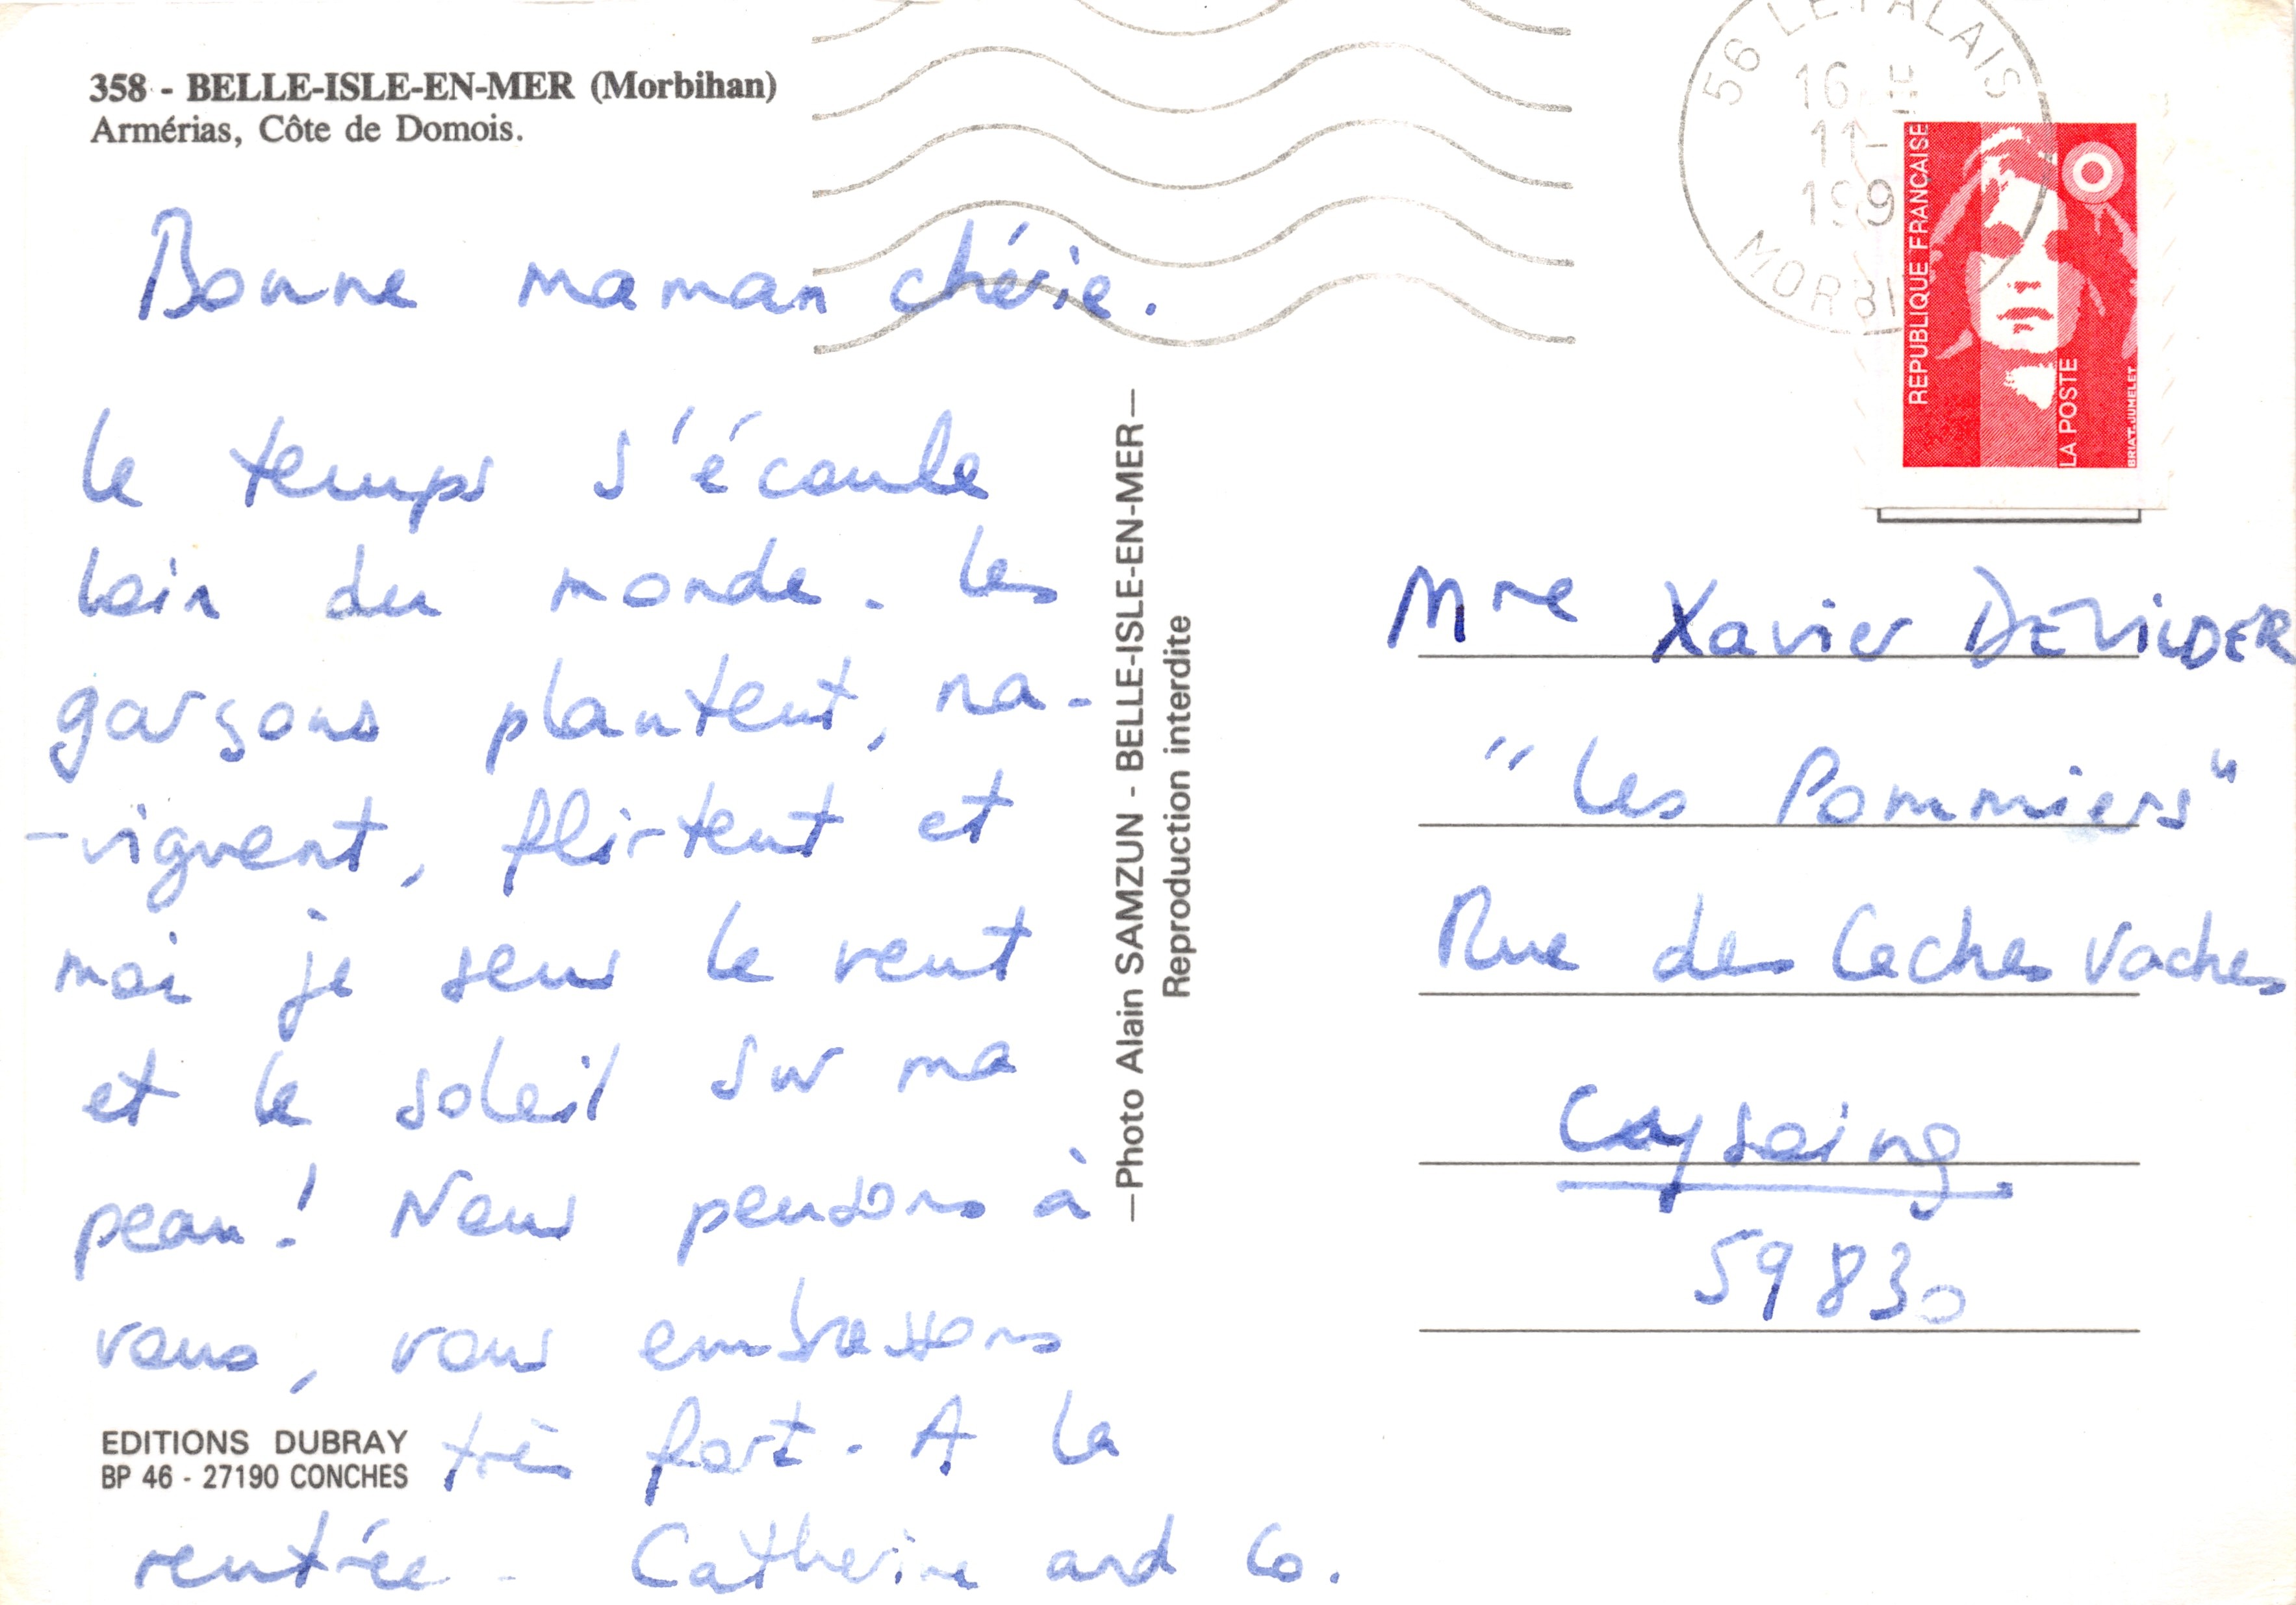 358 - BELLE-ISLE-EN-MER (Morbihan)
Armérias, Côte de Domois.
56 LE PALAIS
16 H
11-
199
MORBI
REPUBLIQUE FRANCAISE
LA POSTE
BRIAT.JUMELET
Bonne maman chérie.
le temps s'écoule
loin du monde. les
garçons plantent, na-
-viguent, flirtent et
moi je sens le vent
et le soleil sur ma
peau! Nous pensons à
vous, vous embrassons
très fort. A la
rentrée. Catherine and Co.
EDITIONS DUBRAY
BP 46 - 27190 CONCHES
Photo Alain SAMZUN - BELLE-ISLE-EN-MER
Reproduction interdite
Mme Xavier
"les Pommiers"
Rue des Caches Vaches
Cysoing
59830